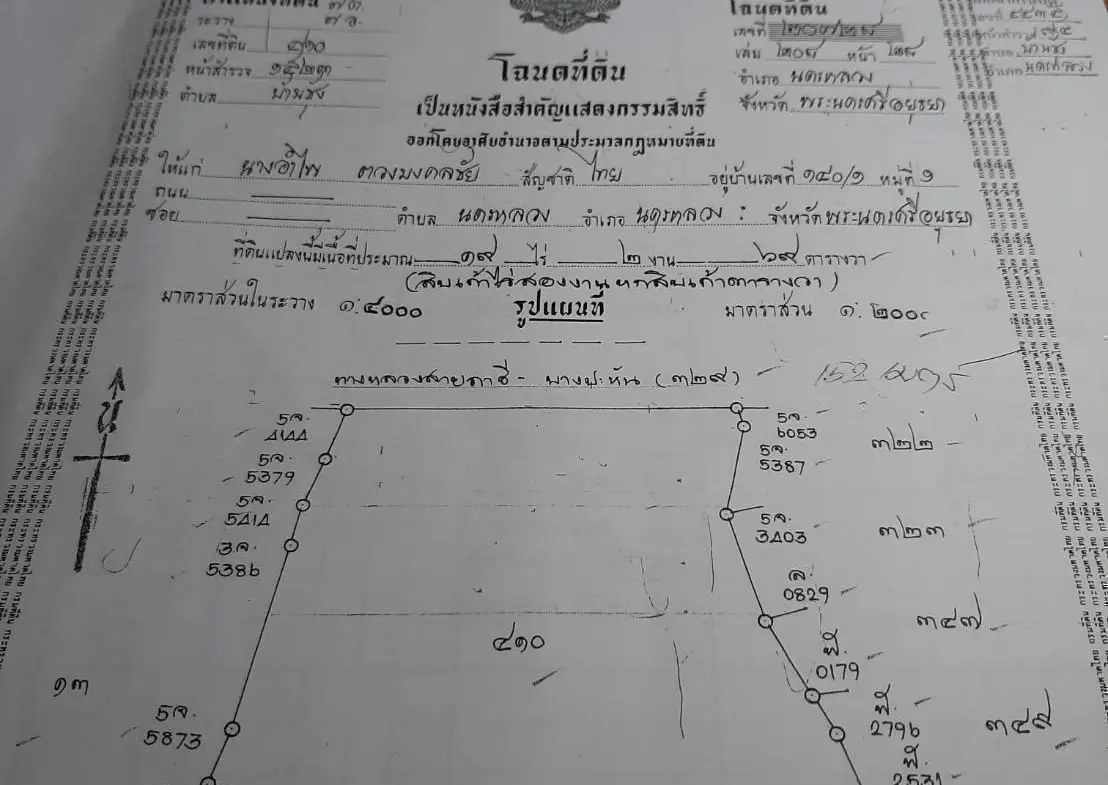 ระวาง
เลขที่ดิน ๔๑๐
หน้าสำรวจ
ตำบล บ้านชุ้ง
โฉนดที่ดิน
เลขที่ ๒๐๗๒๘
เล่ม ๒๐๘ หน้า ๒๘
อำเภอ นครหลวง
จังหวัด พระนครศรีอยุธยา
โฉนดที่ดิน
เป็นหนังสือสำคัญแสดงกรรมสิทธิ์
ออกโดยอาศัยอำนาจตามประมวลกฎหมายที่ดิน
ให้แก่ นางอำไพ ดวงมงคลชัย สัญชาติ ไทย อยู่บ้านเลขที่ ๑๔๐/๑ หมู่ที่ ๑
ถนน
ซอย ตำบล นครหลวง อำเภอ นครหลวง จังหวัด พระนครศรีอยุธยา
ที่ดินแปลงนี้มีเนื้อที่ประมาณ ๑๙ ไร่ ๒ งาน ๖๙ ตารางวา
(สิบเก้าไร่สองงานหกสิบเก้าตารางวา)
มาตราส่วนในระวาง ๑:๔๐๐๐ รูปแผนที่ มาตราส่วน ๑:๒๐๐๐
ทางหลวงสายภาชี - บางปะหัน (๓๒๙) 152 เมตร
น
5จ. 4144
5จ. 6053
๓๒๒
5จ. 5379
5จ. 5387
5จ. 5414
5จ. 3403
๓๒๓
5386
0829
๓๔๗
๔๑๐
0179
๑๓
5จ. 5873
2796
๓๔๙
2531